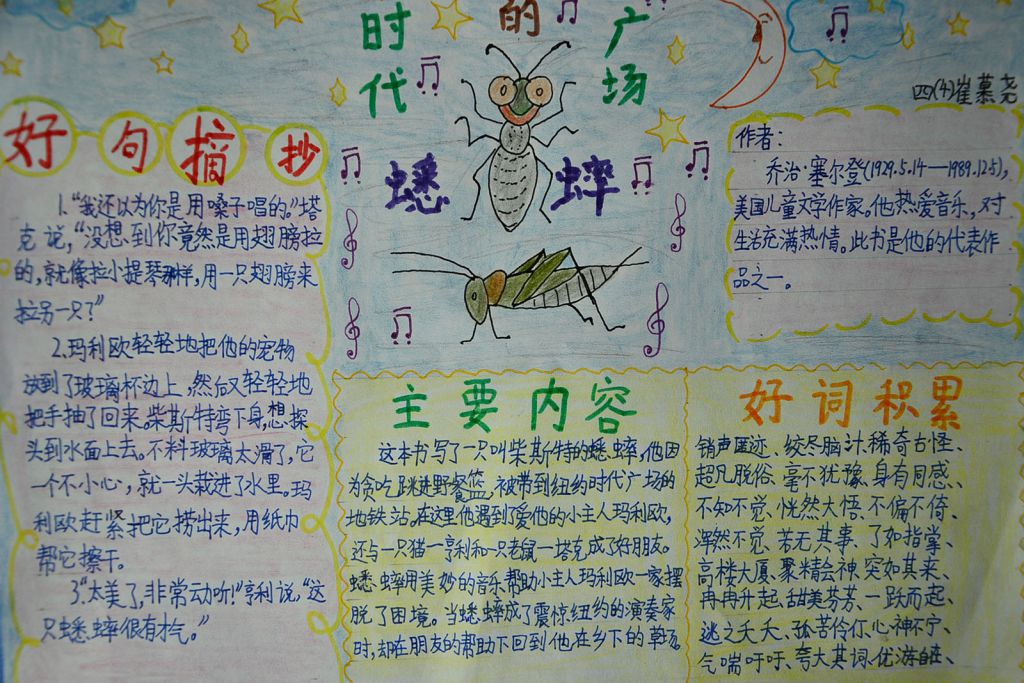 时代的广场
蟋蟀
四(4)崔慕尧
好句摘抄
1.“我还以为你是用嗓子唱的。”塔
克说,“没想到你竟然是用翅膀拉
的,就像拉小提琴那样,用一只翅膀来
拉另一只?”
2.玛利欧轻轻地把他的宠物
放到了玻璃杯边上,然后又轻轻地
把手抽了回来。柴斯特弯下身,想探
头到水面上去。不料玻璃太滑了,它
一个不小心,就一头栽进了水里。玛
利欧赶紧把它捞出来,用纸巾
帮它擦干。
3.“太美了,非常动听!”亨利说,“这
只蟋蟀很有才气。”
作者:
乔治·塞尔登(1929.5.14—1989.12.5),
美国儿童文学作家。他热爱音乐,对
生活充满热情。此书是他的代表作
品之一。
主要内容
这本书写了一只叫柴斯特的蟋蟀,他因
为贪吃跳进野餐篮,被带到纽约时代广场的
地铁站。在这里他遇到了爱他的小主人玛利欧,
还与一只猫—亨利和一只老鼠—塔克成了好朋友。
蟋蟀用美妙的音乐帮助小主人玛利欧一家摆
脱了困境。当蟋蟀成了震惊纽约的演奏家
时,却在朋友的帮助下回到他在乡下的草场。
好词积累
销声匿迹、绞尽脑汁、稀奇古怪、
超凡脱俗、毫不犹豫、身有同感、
不知不觉、恍然大悟、不偏不倚、
浑然不觉、若无其事、了如指掌、
高楼大厦、聚精会神、突如其来、
冉冉升起、甜美芬芳、一跃而起、
逃之夭夭、孤苦伶仃、心神不宁、
气喘吁吁、夸大其词、优游自在、